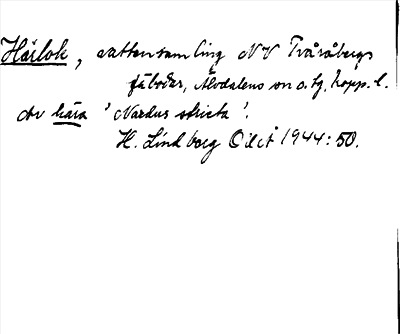 Härlok, vattensamling NV Tvåråbergs
fäbodar, Älvdalens sn o. tg, Kopp. l.
Av hära 'Nardus stricta'.
H. Lindberg OÄcit 1944: 50.